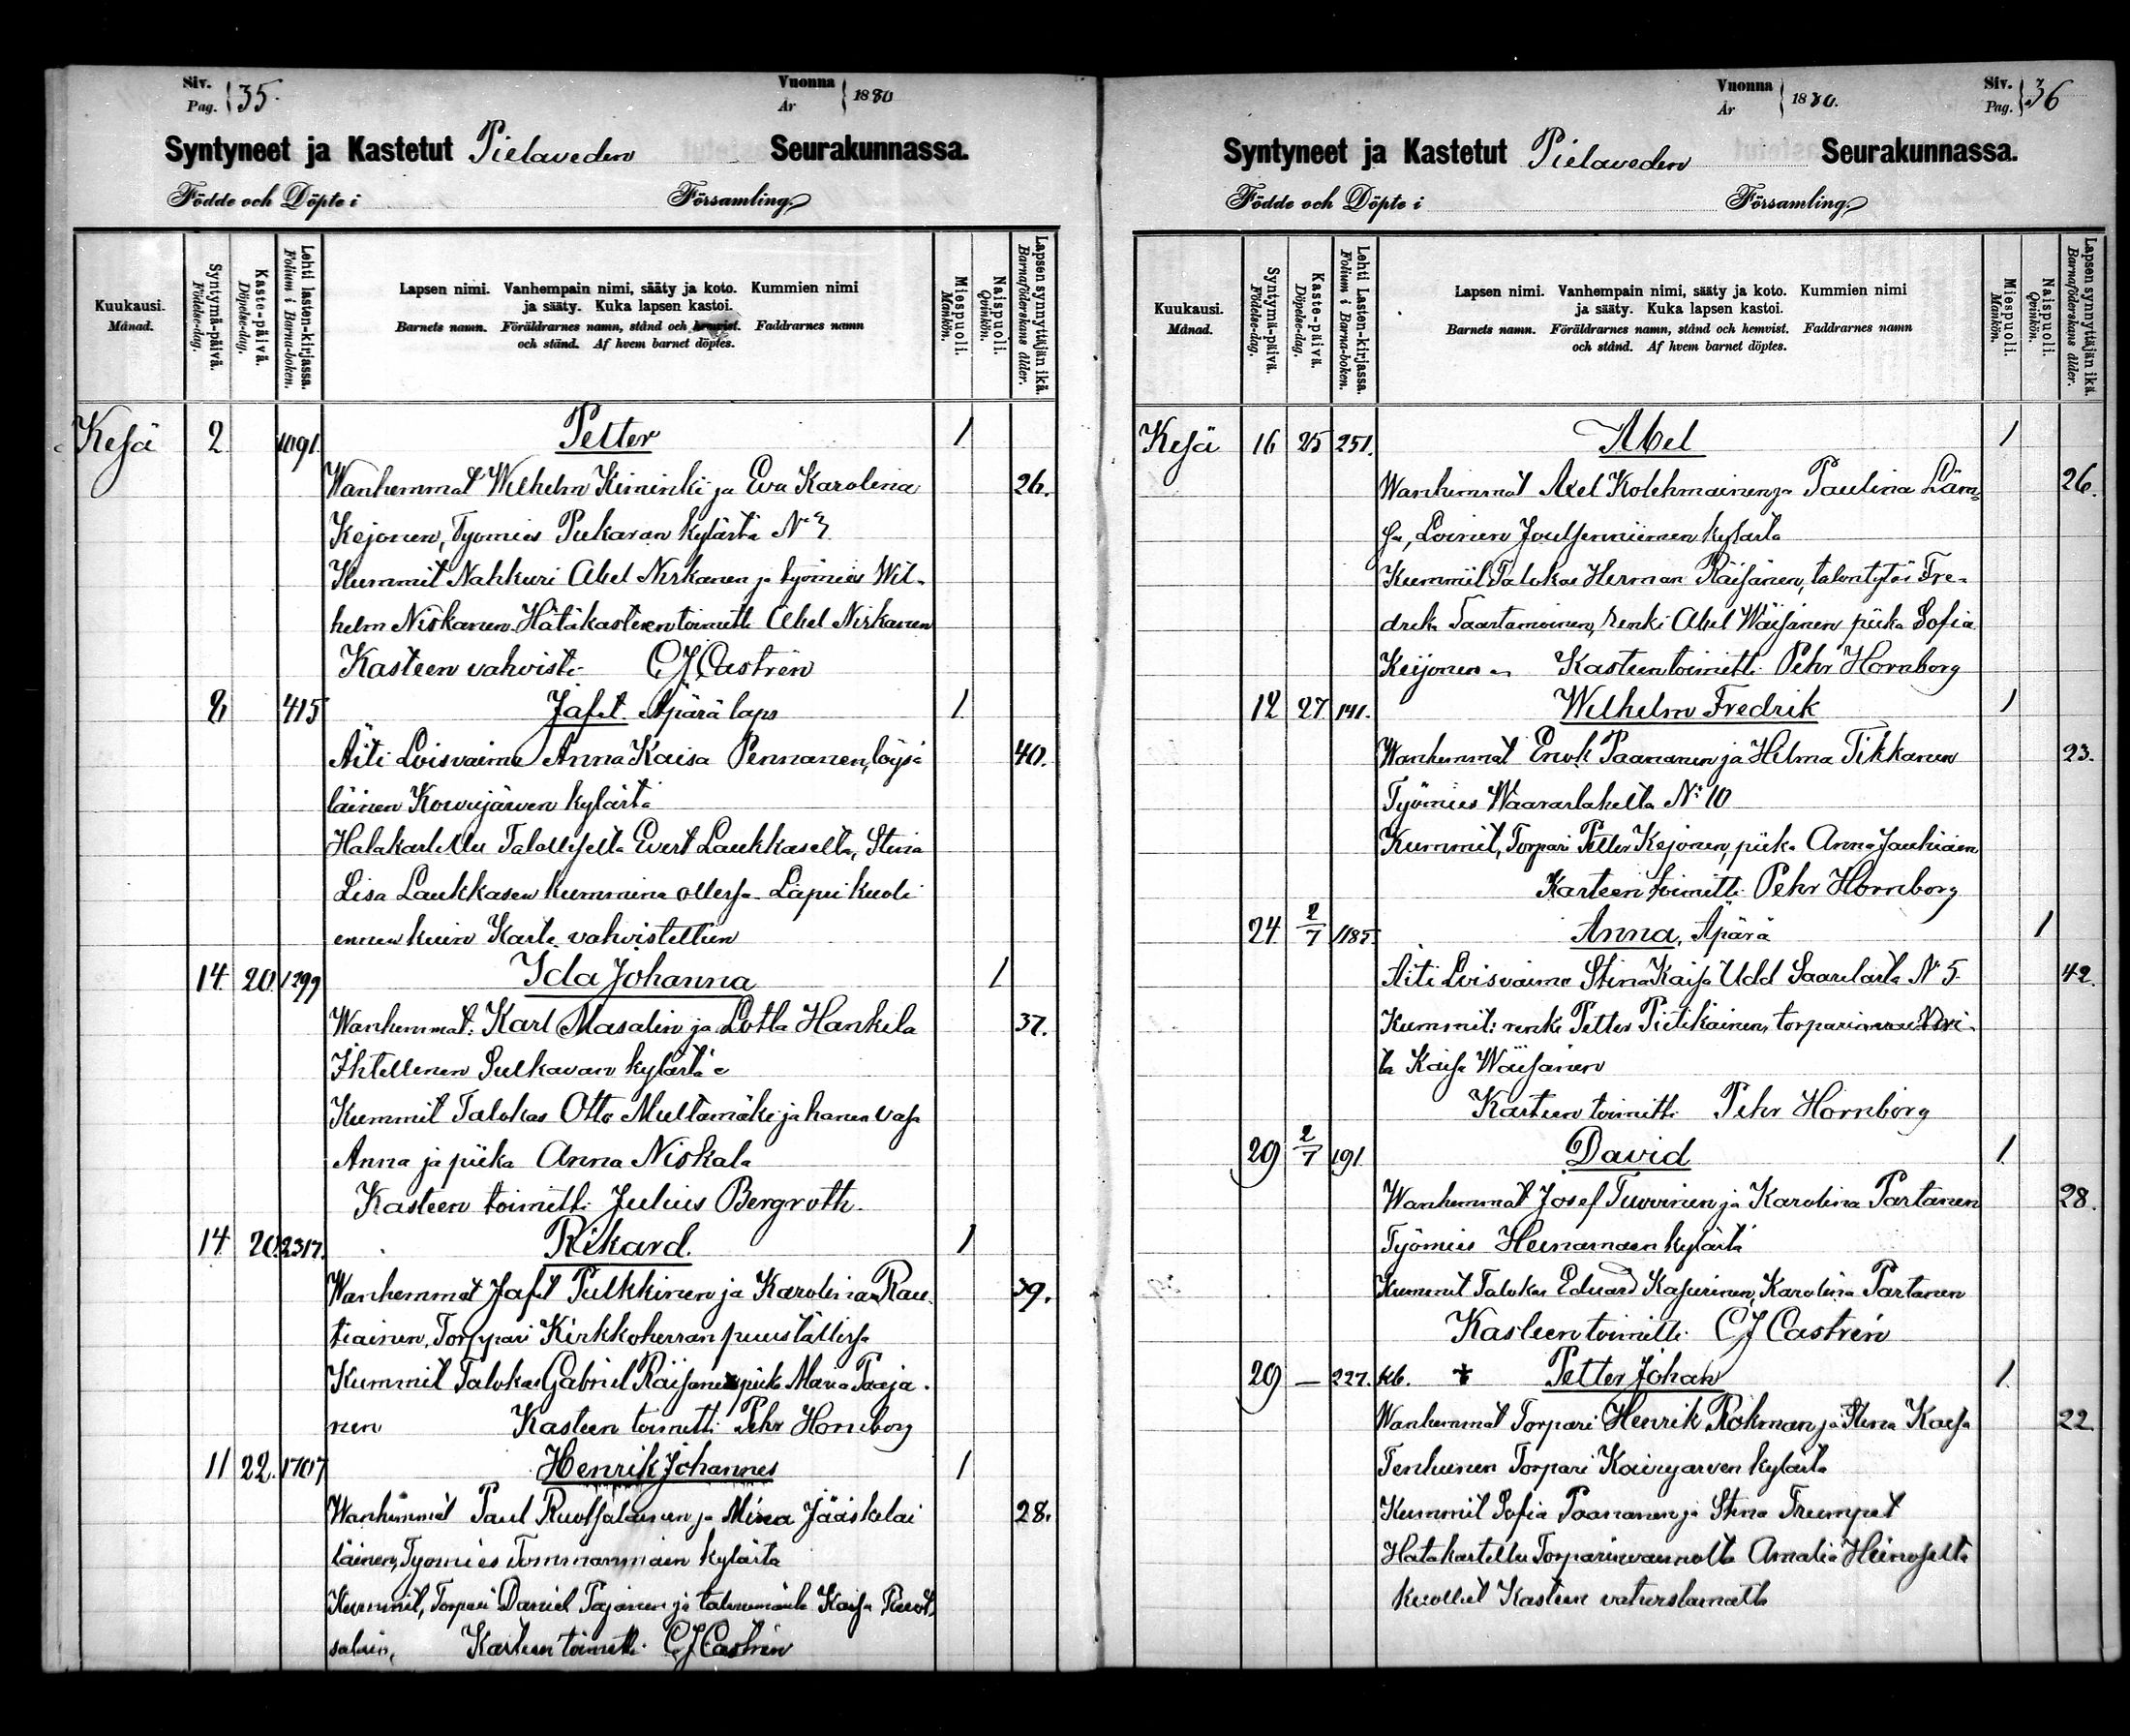 Siv. Pag. 35. Vuonna År 1880
Syntyneet ja Kastetut Pielaveden Seurakunnassa.
Födde och Döpte i Församling.
Kuukausi. Månad.
Syntymä-päivä. Födelse-dag.
Kaste-päivä. Döpelse-dag.
Lehti lasten-kirjassa. Folium i Barna-boken.
Lapsen nimi. Vanhempain nimi, sääty ja koto. Kummien nimi
ja sääty. Kuka lapsen kastoi.
Barnets namn. Föräldrarnes namn, stånd och hemvist. Faddrarnes namn
och stånd. Af hvem barnet döptes.
Miespuoli. Mankön.
Naispuoli. Qvinkön.
Lapsen synnyttäjän ikä. Barnaföderskans ålder.
Kesä 2 1091. Petter 1
Wanhemmat Wilhelm Kiminki ja Eva Karolina 26.
Kejonen, Tyomies Pukaran kylästä N:
Kummit Nahkuri Abel Niskanen ja tyomies Wil-
helm Niskanen. Hätäkasteen toimitti Abel Niskanen
Kasteen vahvisti C J Castrén
8 415 Jafet. Äpärä laps 1.
Äiti Loisvaimo Anna Kaisa Pennanen, löysä 40.
läinen Kowujärwen kylästä
Hätäkastettu Talollisella Evert Laukkaselta, Stina
Lisa Laukkasen kummina ollessa. Lapsi kuoli
ennen kuin Kaste vahvistettiin
14. 20. 1299 Ida Johanna 1
Wanhemmat: Karl Masalin ja Lotta Hankila 37.
Ihtellinen Sulkavan kylästä
Kummit Talokas Otto Multamäki ja hänen vaso
Anna ja piika Anna Niskala
Kasteen toimitti Julius Bergroth.
14 20. 2317. Rikard. 1
Wanhemmat Jafet Pulkkinen ja Karolina Rau- 39.
tiainen, Torppari Kirkkoherran puustallissa
Kummit Talokas Gabriel Räisänen piika Maria Paaja-
nen Kasteen toimitti Pehr Hornborg
11 22. 1707 Henrik Johannes 1
Wanhemmat Paul Ruotsalainen ja Mina Jääskelai 28.
läinen, Tyomies Tommanmäen kylästä
Kummit, Torpari Daniel Pajanen ja Kaisa Ruot-
salain, Kasteen toimitti C J Castrén
Vuonna År 1880. Siv. Pag. 36
Syntyneet ja Kastetut Pielaveden Seurakunnassa.
Födde och Döpte i Församling.
Kuukausi. Månad.
Syntymä-päivä. Födelse-dag.
Kaste-päivä. Döpelse-dag.
Lehti Lasten-kirjassa. Folium i Barna-boken.
Lapsen nimi. Vanhempain nimi, sääty ja koto. Kummien nimi
ja sääty. Kuka lapsen kastoi.
Barnets namn. Föräldrarnes namn, stånd och hemvist. Faddrarnes namn
och stånd. Af hvem barnet döptes.
Miespuoli. Mankön.
Naispuoli. Qvinkön.
Lapsen synnyttäjän ikä. Barnaföderskans ålder.
Kesä 16 25 251. Abel 1
Wanhemmat Axel Kolehmainen ja Paulina Läm- 26.
sa, Loinen Joutsenniemen kylästä
Kummit Talokas Herman Räisänen, talontytär Fre-
drika Saastamoinen, renki Abel Wäisänen piika Sofia
Keijonen Kasteen toimitti Pehr Hornborg
12 27 141. Wilhelm Fredrik 1
Wanhemmat Enok Paananen ja Hilma Tikkanen 23.
Työmies Waaraslahelta N:o 10
Kummit, Torpari Petter Kejonen, piika Anna Jauhiainen
Kasteen toimitti Pehr Hornborg
24 2/7 1185. Anna, Äpärä 1
Äiti Loisvaimo Stina Kaisa Udd Saarelasta N 5. 42.
Kummit: renki Petter Pietikainen, torparin
ta Kaisa Wäisänen
Kasteen toimitti Pehr Hornborg
29 2/7 191. David 1.
Wanhemmat Josef Tuovinen ja Karolina Partanen 28.
Työmies Heinämäen kylästä
Kummit Talokas Eduard Kasurinen, Karolina Partanen
Kasteen toimitti C J Castrén
29 — 227. kb. + Petter Johan 1.
Wanhemmat Torpari Henrik Rokman ja Stina Kaisa 22
Tenhunen Torpari Koivujarven kylästä
Kummit Sofia Paananen ja Stina Trumpet
Hätäkastettu Torparinvaimolta Amalia Heinoselta
kuollut Kasteen vahvistamatta